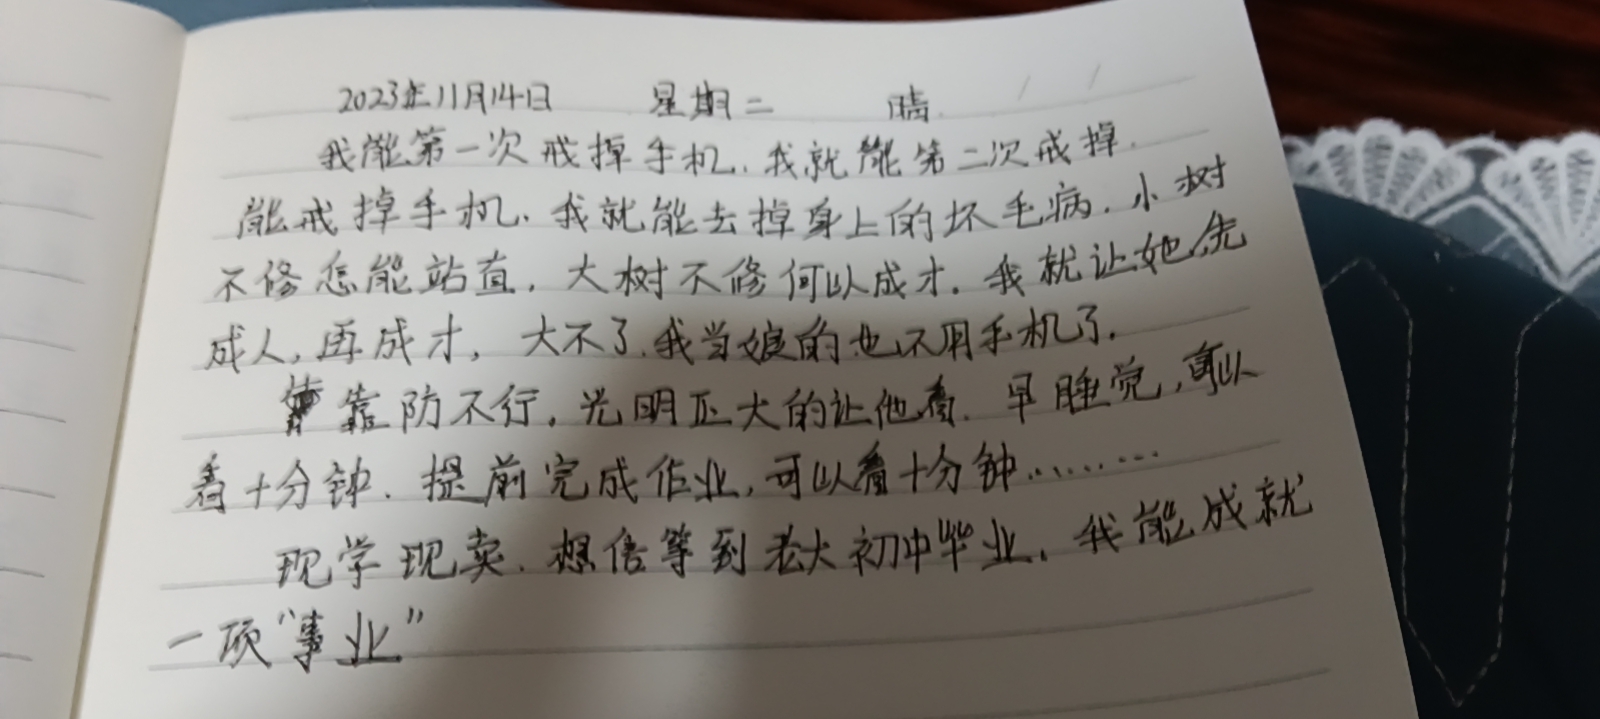 2023年11月14日 星期二 晴.
我能第一次戒掉手机.我就能第二次戒掉.
能戒掉手机.我就能去掉身上的坏毛病.小树
不修怎能站直,大树不修何以成才.我就让她先
成人,再成才,大不了.我当娘的也不用手机了.
靠防不行,光明正大的让他看.早睡觉,可以
看十分钟.提前完成作业,可以看十分钟........
现学现卖.想信等到老大初中毕业.我能成就
一项"事业"